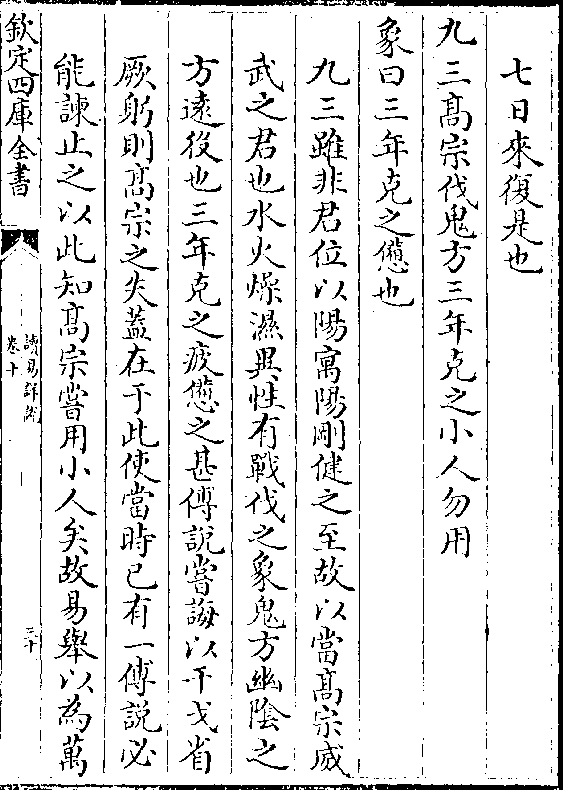 七日來復是也
九三髙宗伐鬼方三年克之小人勿用
象曰三年克之憊也
九三雖非君位以陽寓陽剛健之至故以當髙宗威
武之君也水火燥濕異性有戰伐之象鬼方幽陰之
方遠役也三年克之疲憊之甚傅說嘗誨以干戈省
厥躬則髙宗之失蓋在于此使當時已有一傅說必
能諫止之以此知髙宗嘗用小人矣故易舉以為萬
欽定四庫全書
讀易詳說
卷十
三十